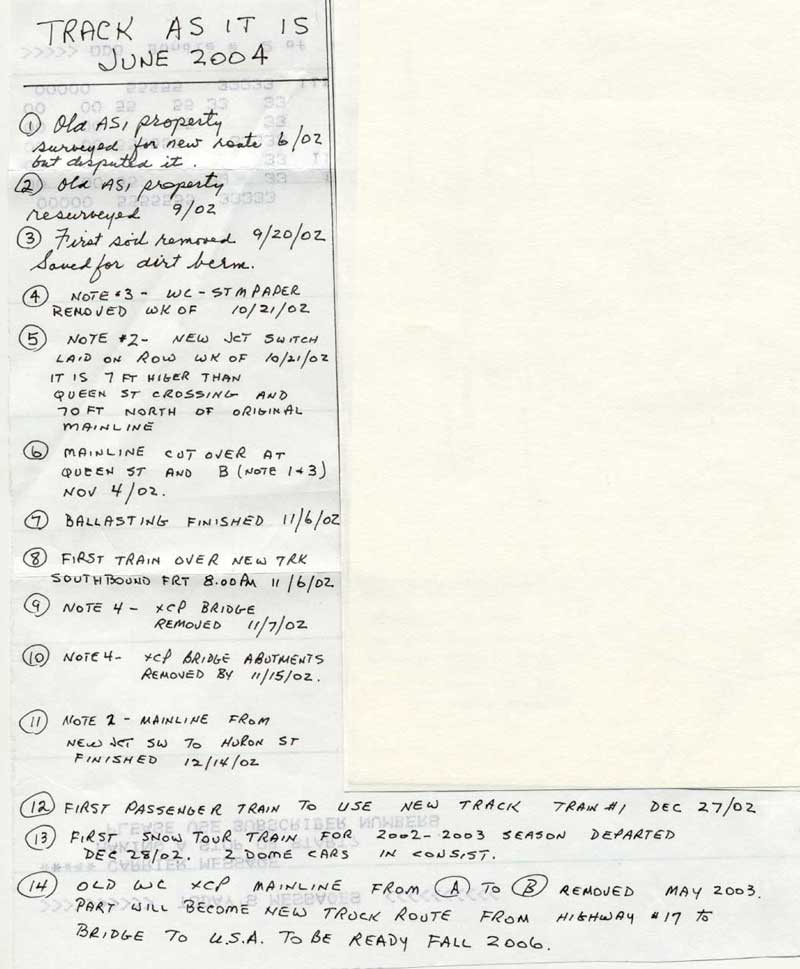 TRACK AS IT IS
JUNE 2004
① Old ASI property
surveyed for new route 6/02
but disputed it.
② Old ASI property
resurveyed 9/02
③ First soil removed 9/20/02
Saved for dirt berm.
④ NOTE #3 - WC - STM PAPER
REMOVED WK OF 10/21/02
⑤ NOTE #2- NEW JCT SWITCH
LAID ON ROW WK OF 10/21/02
IT IS 7 FT HIGER THAN
QUEEN ST CROSSING AND
70 FT NORTH OF ORIGINAL
MAINLINE
⑥ MAINLINE CUT OVER AT
QUEEN ST AND B (NOTE 1+3)
NOV 4/02.
⑦ BALLASTING FINISHED 11/6/02
⑧ FIRST TRAIN OVER NEW TRK
SOUTHBOUND FRT 8.00AM 11/6/02
⑨ NOTE 4 - XCP BRIDGE
REMOVED 11/7/02
⑩ NOTE 4- XCP BRIDGE ABUTMENTS
REMOVED BY 11/15/02.
⑪ NOTE 2 - MAINLINE FROM
NEW JCT SW TO HURON ST
FINISHED 12/14/02
⑫ FIRST PASSENGER TRAIN TO USE NEW TRACK TRAIN #1 DEC 27/02
⑬ FIRST SNOW TOUR TRAIN FOR 2002-2003 SEASON DEPARTED
DEC 28/02. 2 DOME CARS IN CONSIST.
⑭ OLD WC XCP MAINLINE FROM Ⓐ TO Ⓑ REMOVED MAY 2003.
PART WILL BECOME NEW TRUCK ROUTE FROM HIGHWAY #17 to
BRIDGE TO U.S.A. TO BE READY FALL 2006.